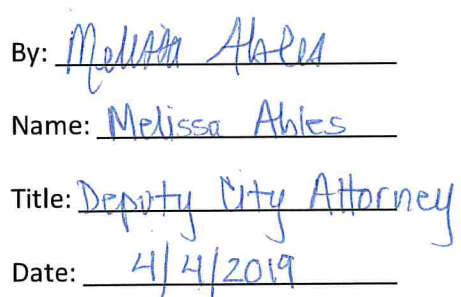 By: Melissa Ables
Name: Melissa Ables
Title: Deputy City Attorney
Date: 4/4/2019